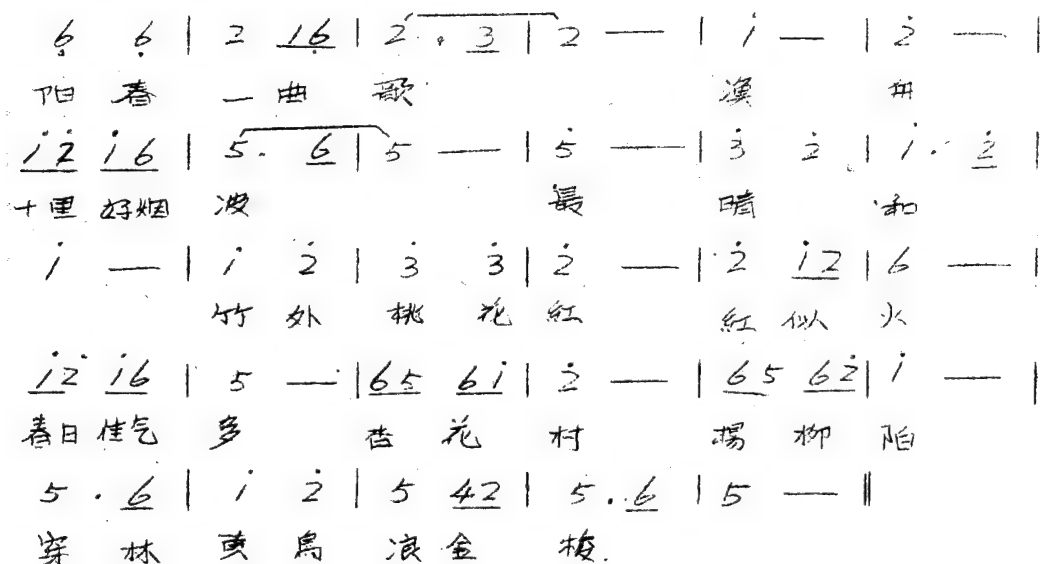 6̣ 6̣ | 2 1 6̣ | 2 . 3 | 2 — | i — | 2̇ — |
阳 春 一 曲 歌 漢 舟
i 2̇ i 6 | 5 . 6 | 5 — | 5̇ — | 3̇ 2̇ | i . 2̇ |
十里 好烟 波 最 晴 和
i — | i 2̇ | 3̇ 3̇ | 2̇ — | 2̇ i 2̇ | 6 — |
竹 外 桃 花 紅 紅 似 火
i 2̇ i 6 | 5 — | 6 5 6 i | 2̇ — | 6 5 6 2̇ | i — |
春日 佳气 多 杏 花 村 楊 柳 陌
5 . 6 | i 2̇ | 5 4 2 | 5 . 6 | 5 — ‖
穿 林 黄 鳥 浪 金 梭.